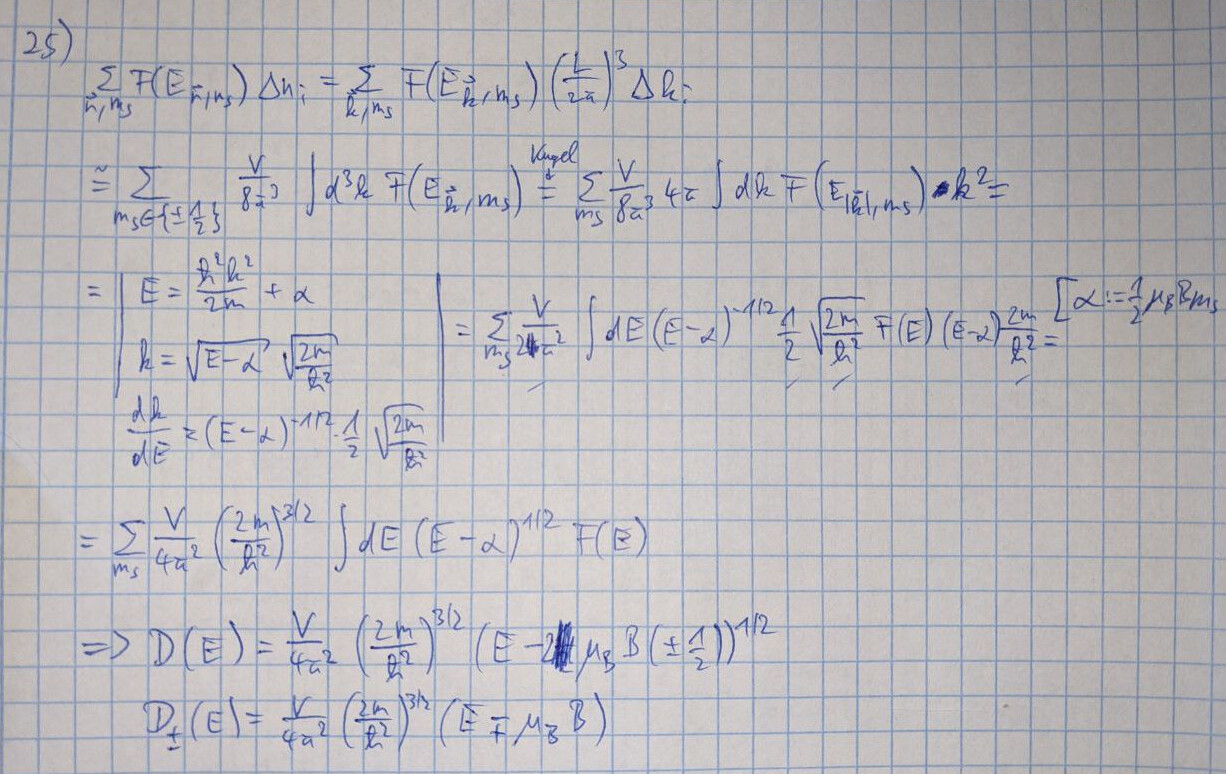 25)
∑_{n⃗,m_s} F(E_{n⃗,m_s}) Δn_i = ∑_{k⃗,m_s} F(E_{k⃗,m_s}) (L/2π)^3 Δk_i
≅ ∑_{m_s∈{±1/2}} V/8π^3 ∫d^3k F(E_{k⃗,m_s}) =^{Kugel} ∑_{m_s} V/8π^3 4π ∫dk F(E_{|k⃗|,m_s}) · k^2 =
= | E = ℏ^2k^2/2m + α
k = √(E-α) √(2m/ℏ^2)
dk/dE = (E-α)^{-1/2} · 1/2 √(2m/ℏ^2) | = ∑_{m_s} V/2π^2 ∫dE (E-α)^{-1/2} 1/2 √(2m/ℏ^2) F(E) (E-α) 2m/ℏ^2 = [α := 1/2 μ_B B m_s
= ∑_{m_s} V/4π^2 (2m/ℏ^2)^{3/2} ∫dE (E-α)^{1/2} F(E)
=> D(E) = V/4π^2 (2m/ℏ^2)^{3/2} (E - 2 μ_B B (±1/2))^{1/2}
D_±(E) = V/4π^2 (2m/ℏ^2)^{3/2} (E ∓ μ_B B)